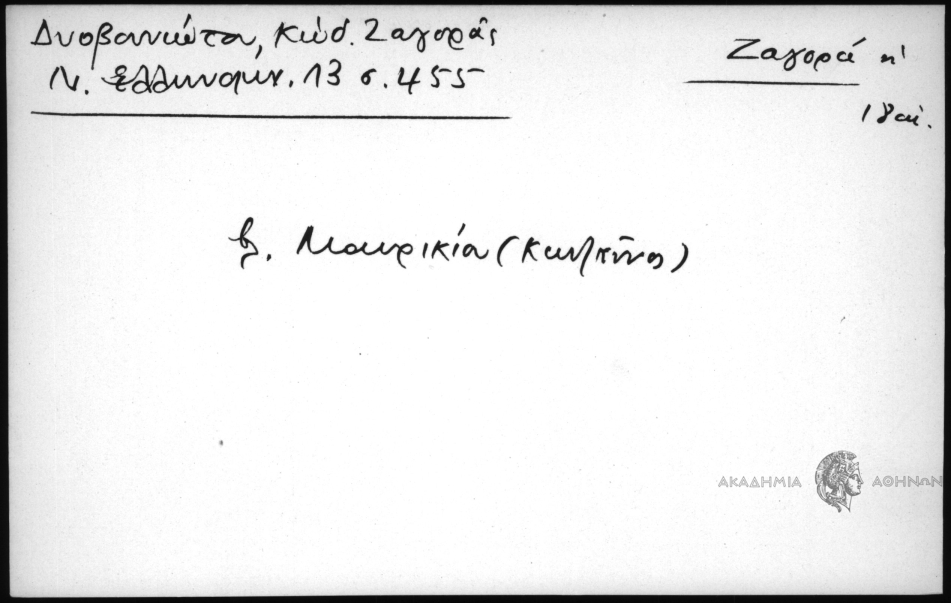 Δυοβουνιώτου, Κώδ. Ζαγοράς
Ν. Ελληνομν. 13 σ. 455
Ζαγορά
18 αι.
βλ. Μαυρικίου
ΑΚΑΔΗΜΙΑ ΑΘΗΝΩΝ